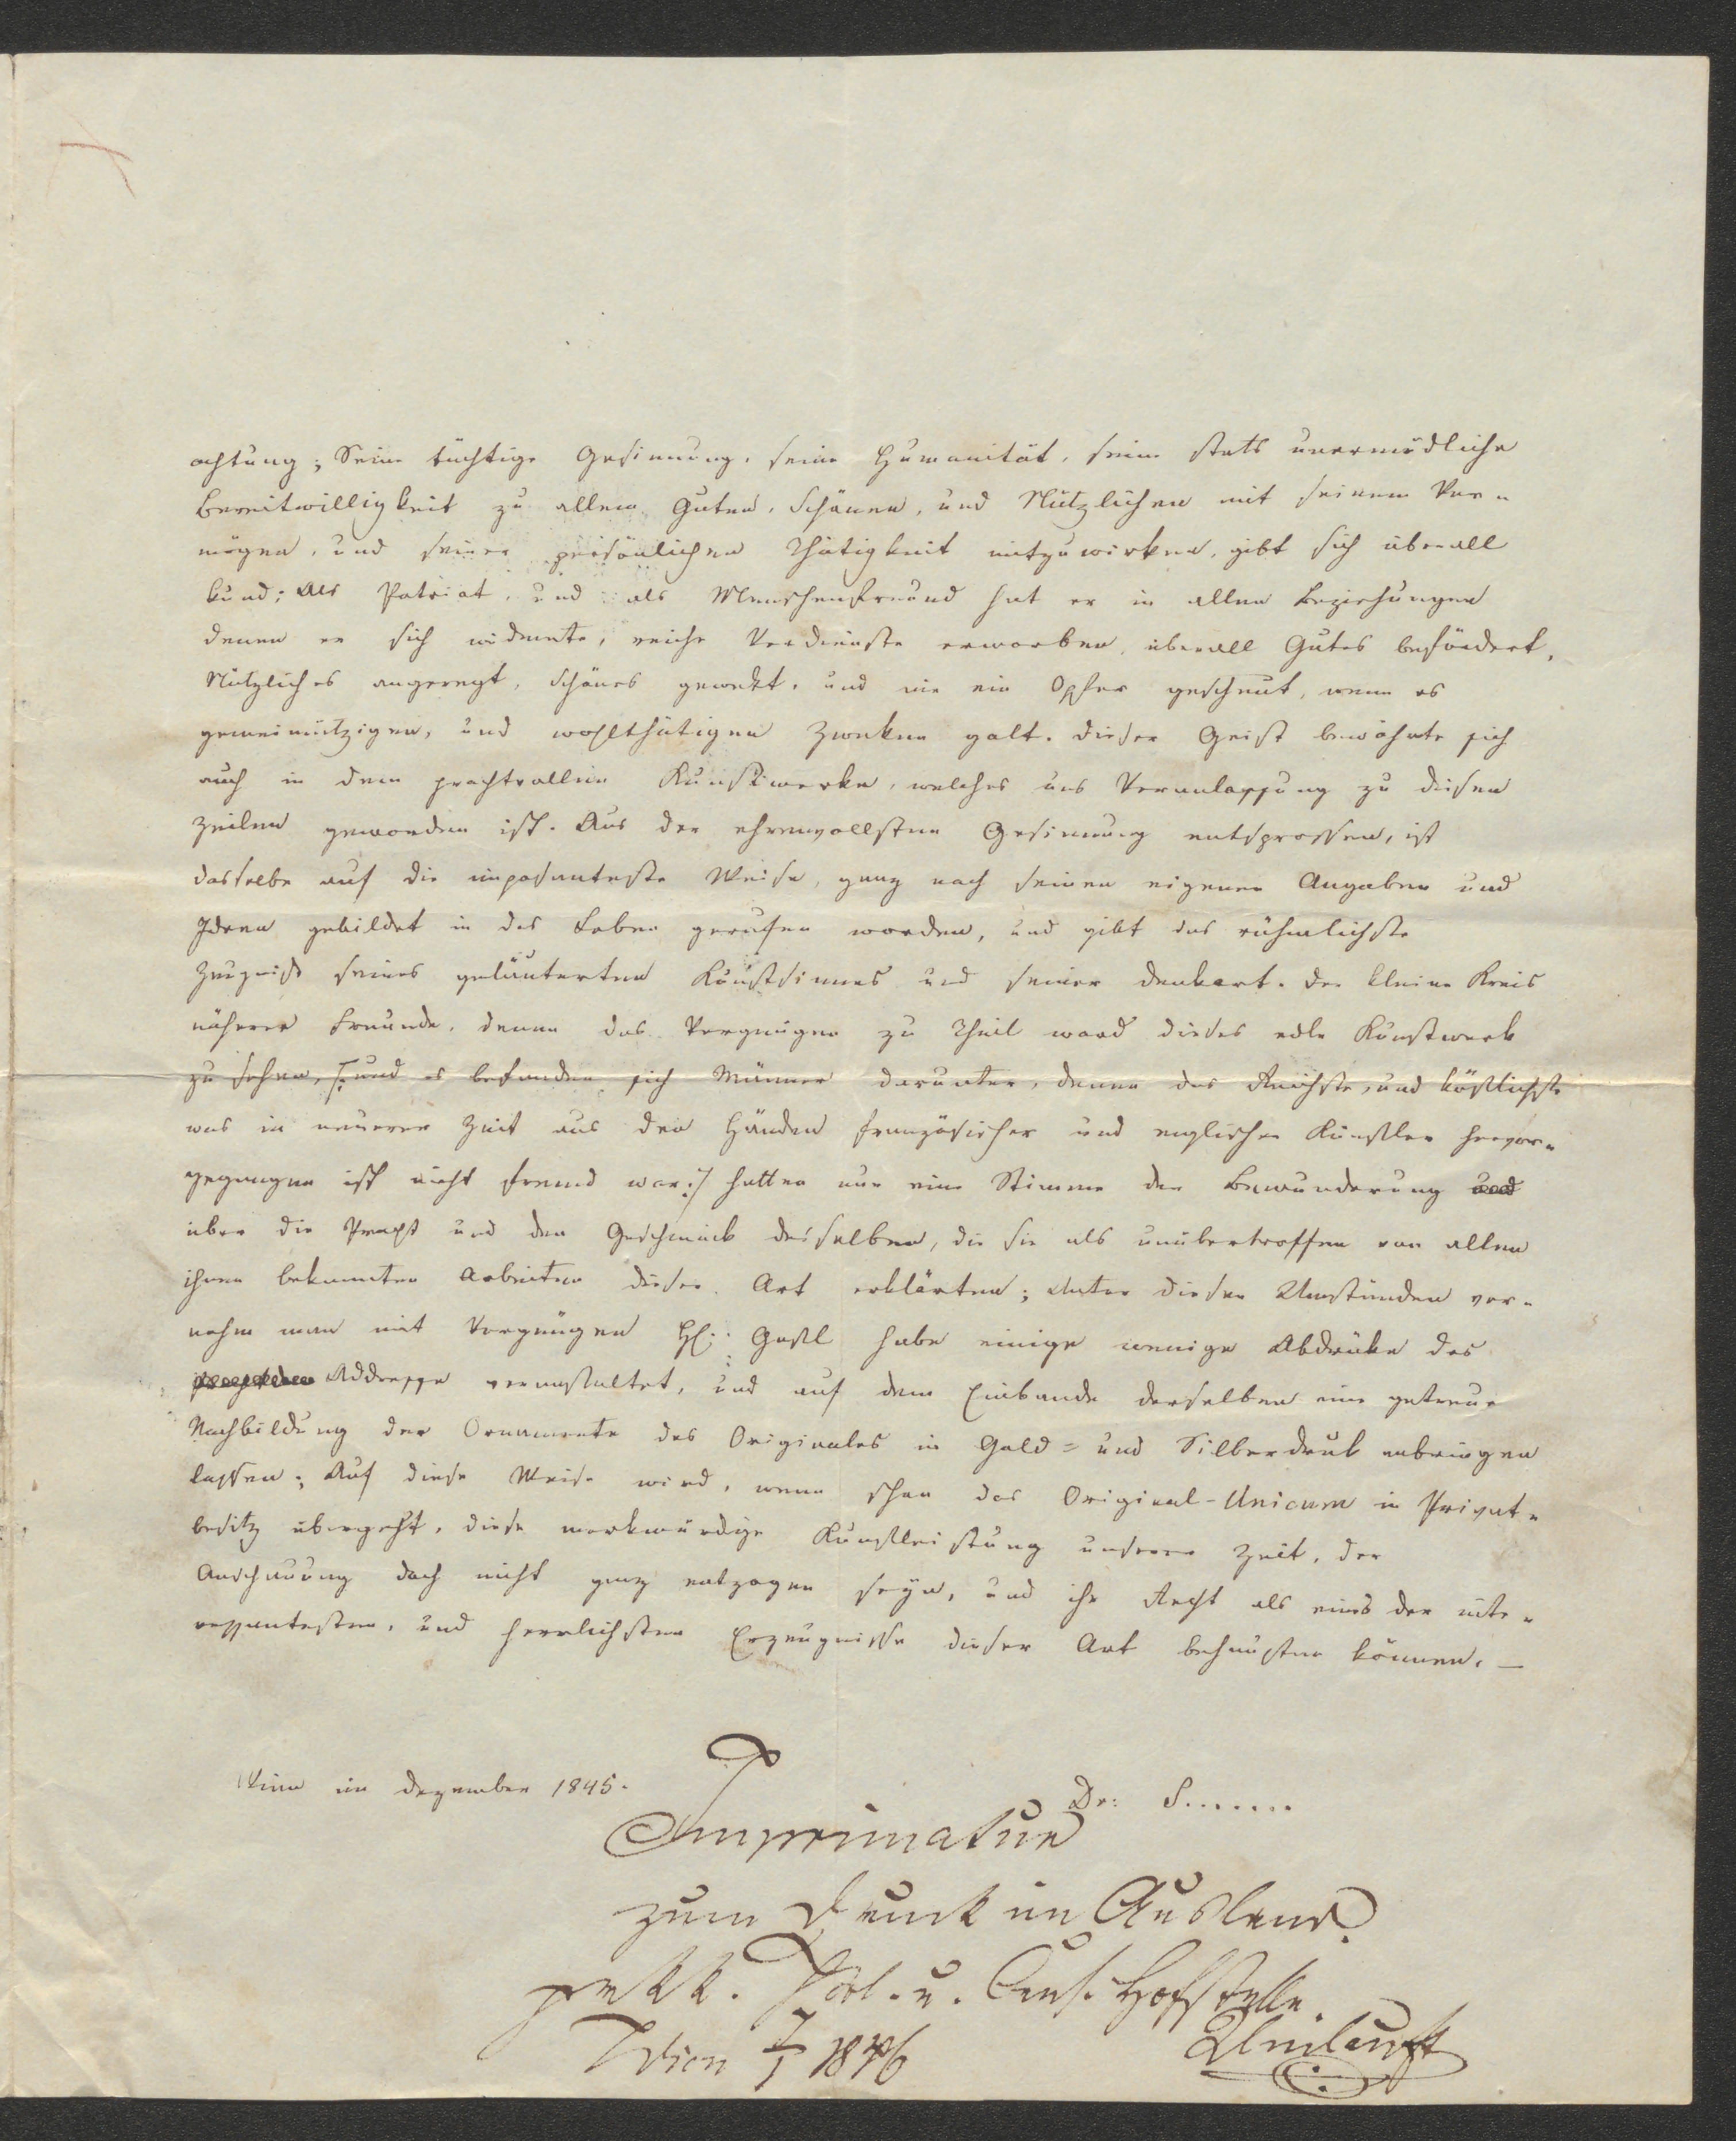 achtung; Seine tüchtige Gesinnung, seine Humanität, seine stets unermüdliche
Bereitwilligkeit zu allem Guten, Schönen, und Nützlichen mit seinem Ver=
mögen, und seiner persönlichen Thätigkeit mitzuwirken, gibt sich überall
kund; Als Patriot, und als Menschenfreund hat er in allen Beziehungen
denen er sich widmete, reiche Verdienste erworben, überall Gutes befördert,
Nützliches angeregt, Schönes gewekt, und nie ein Opfer gescheut, wenn es
gemeinnützigen, und wohlthätigen Zweken galt. Dieser Geist bewährte sich
auch in dem prachtvollen Kunstwerke, welches uns Veranlassung zu diesen
Zeilen geworden ist. Aus der ehrenvollsten Gesinnung entsprossen, ist
dasselbe auf die imposanteste Weise, ganz nach seinen eigenen Angaben und
Ideen gebildet in das Leben gerufen worden, und gibt das rühmlichste
Zeugniß seines geläuterten Kunstsinnes und seiner Denkart. Der kleine Kreis
näherer Freunde, denen das Vergnügen zu Theil ward dieses edle Kunstwerk
zu sehen, /: und es befanden sich Männer darunter, denen das Reichste, und köstlichste
was in neuerer Zeit aus den Händen französischer und englischer Künstler hervor=
gegangen ist nicht fremd war :/ hatten nur eine Stimme der Bewunderung und
über die Pracht und den Geschmack desselben, die sie als unübertroffen von allen
ihnen bekannten Arbeiten dieser Art erklärten; Unter diesen Umständen ver=
nahm man mit Vergnügen H: Gastl habe einige wenige Abdrüke der
Addresse veranstaltet, und auf dem Einbande derselben eine getreue
Nachbildung der Ornamente des Originales in Gold= und Silberdruk anbringen
lassen; Auf diese Weise wird, wenn schon das Original-Unicum in Privat=
besitz übergeht, diese merkwürdige Kunstleistung unserer Zeit, der
Anschauung doch nicht ganz entzogen seyn, und ihr Recht als eines der inte=
ressantesten, und herrlichsten Erzeugnisse dieser Art behaupten können. —
Wien im Dezember 1845.
Dr: S.......
Imprimatur
zum Druck im Ausland.
per k. k. Pol. u. Cens. Hofstelle.
Wien 7/1 1846
Umlauft